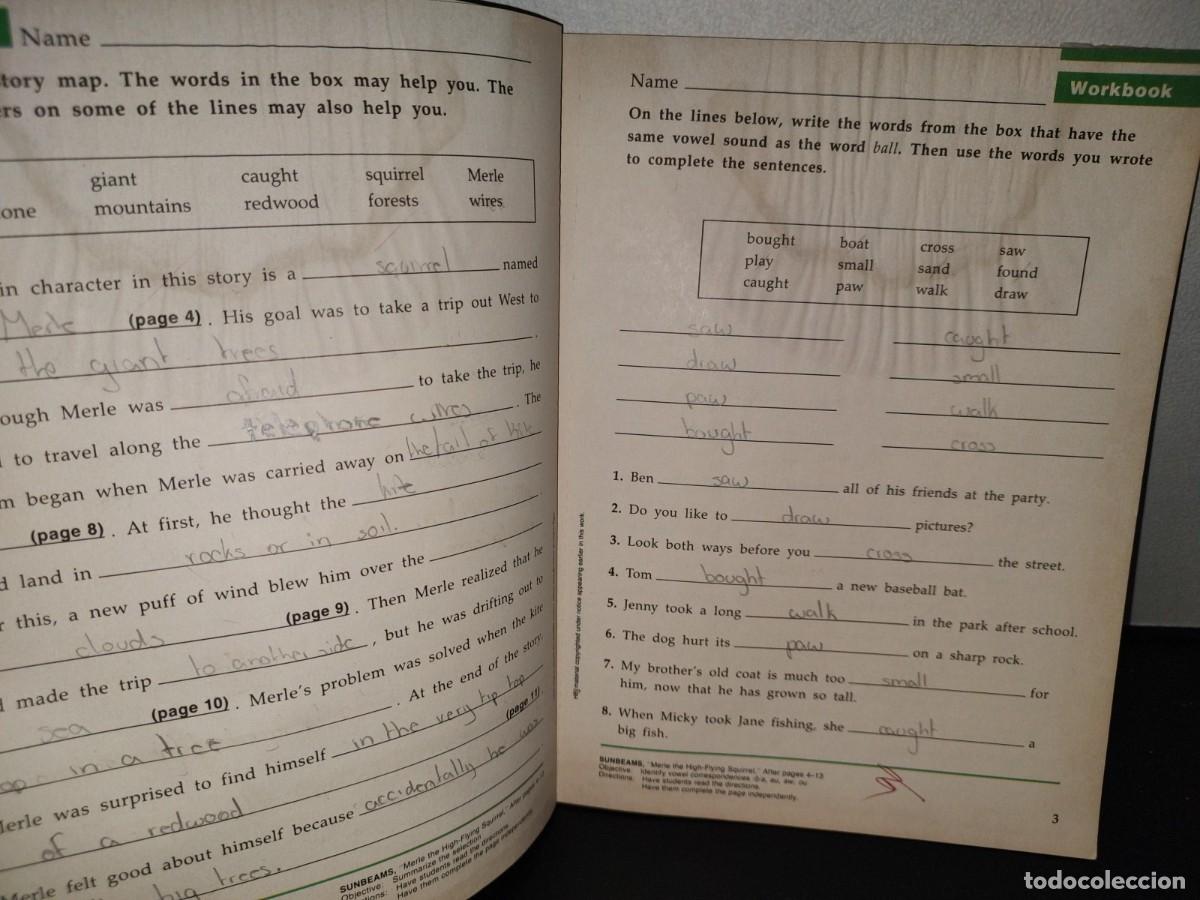 Name
tory map. The words in the box may help you. The
rs on some of the lines may also help you.
giant caught squirrel Merle
one mountains redwood forests wires
in character in this story is a squirrel named
Merle (page 4). His goal was to take a trip out West to
the giant trees.
ough Merle was afraid to take the trip, he
to travel along the telephone wires. The
m began when Merle was carried away on the tail of kite
(page 8). At first, he thought the kite
d land in rocks or in soil.
r this, a new puff of wind blew him over the
clouds (page 9). Then Merle realized that he
d made the trip to another side, but he was drifting out to
sea (page 10). Merle's problem was solved when the kite
in a tree. At the end of the story,
Merle was surprised to find himself in the very tip top
of a redwood (page 11).
Merle felt good about himself because accidentally he was
big trees.
SUNBEAMS, "Merle the High-Flying Squirrel," After pages 4-13
Objective: Summarize the selection
tions: Have students read the directions.
Have them complete the page independently.
Workbook
Name
On the lines below, write the words from the box that have the
same vowel sound as the word ball. Then use the words you wrote
to complete the sentences.
bought boat cross saw
play small sand found
caught paw walk draw
saw caught
draw small
paw walk
bought cross
1. Ben saw all of his friends at the party.
2. Do you like to draw pictures?
3. Look both ways before you cross the street.
4. Tom bought a new baseball bat.
5. Jenny took a long walk in the park after school.
6. The dog hurt its paw on a sharp rock.
7. My brother's old coat is much too small for
him, now that he has grown so tall.
8. When Micky took Jane fishing, she caught a
big fish.
HBJ material copyrighted under notice appearing earlier in this work.
SUNBEAMS, "Merle the High-Flying Squirrel," After pages 4-13
Objective: Identify vowel correspondences
Directions: Have students read the directions.
Have them complete the page independently.
3
todocoleccion